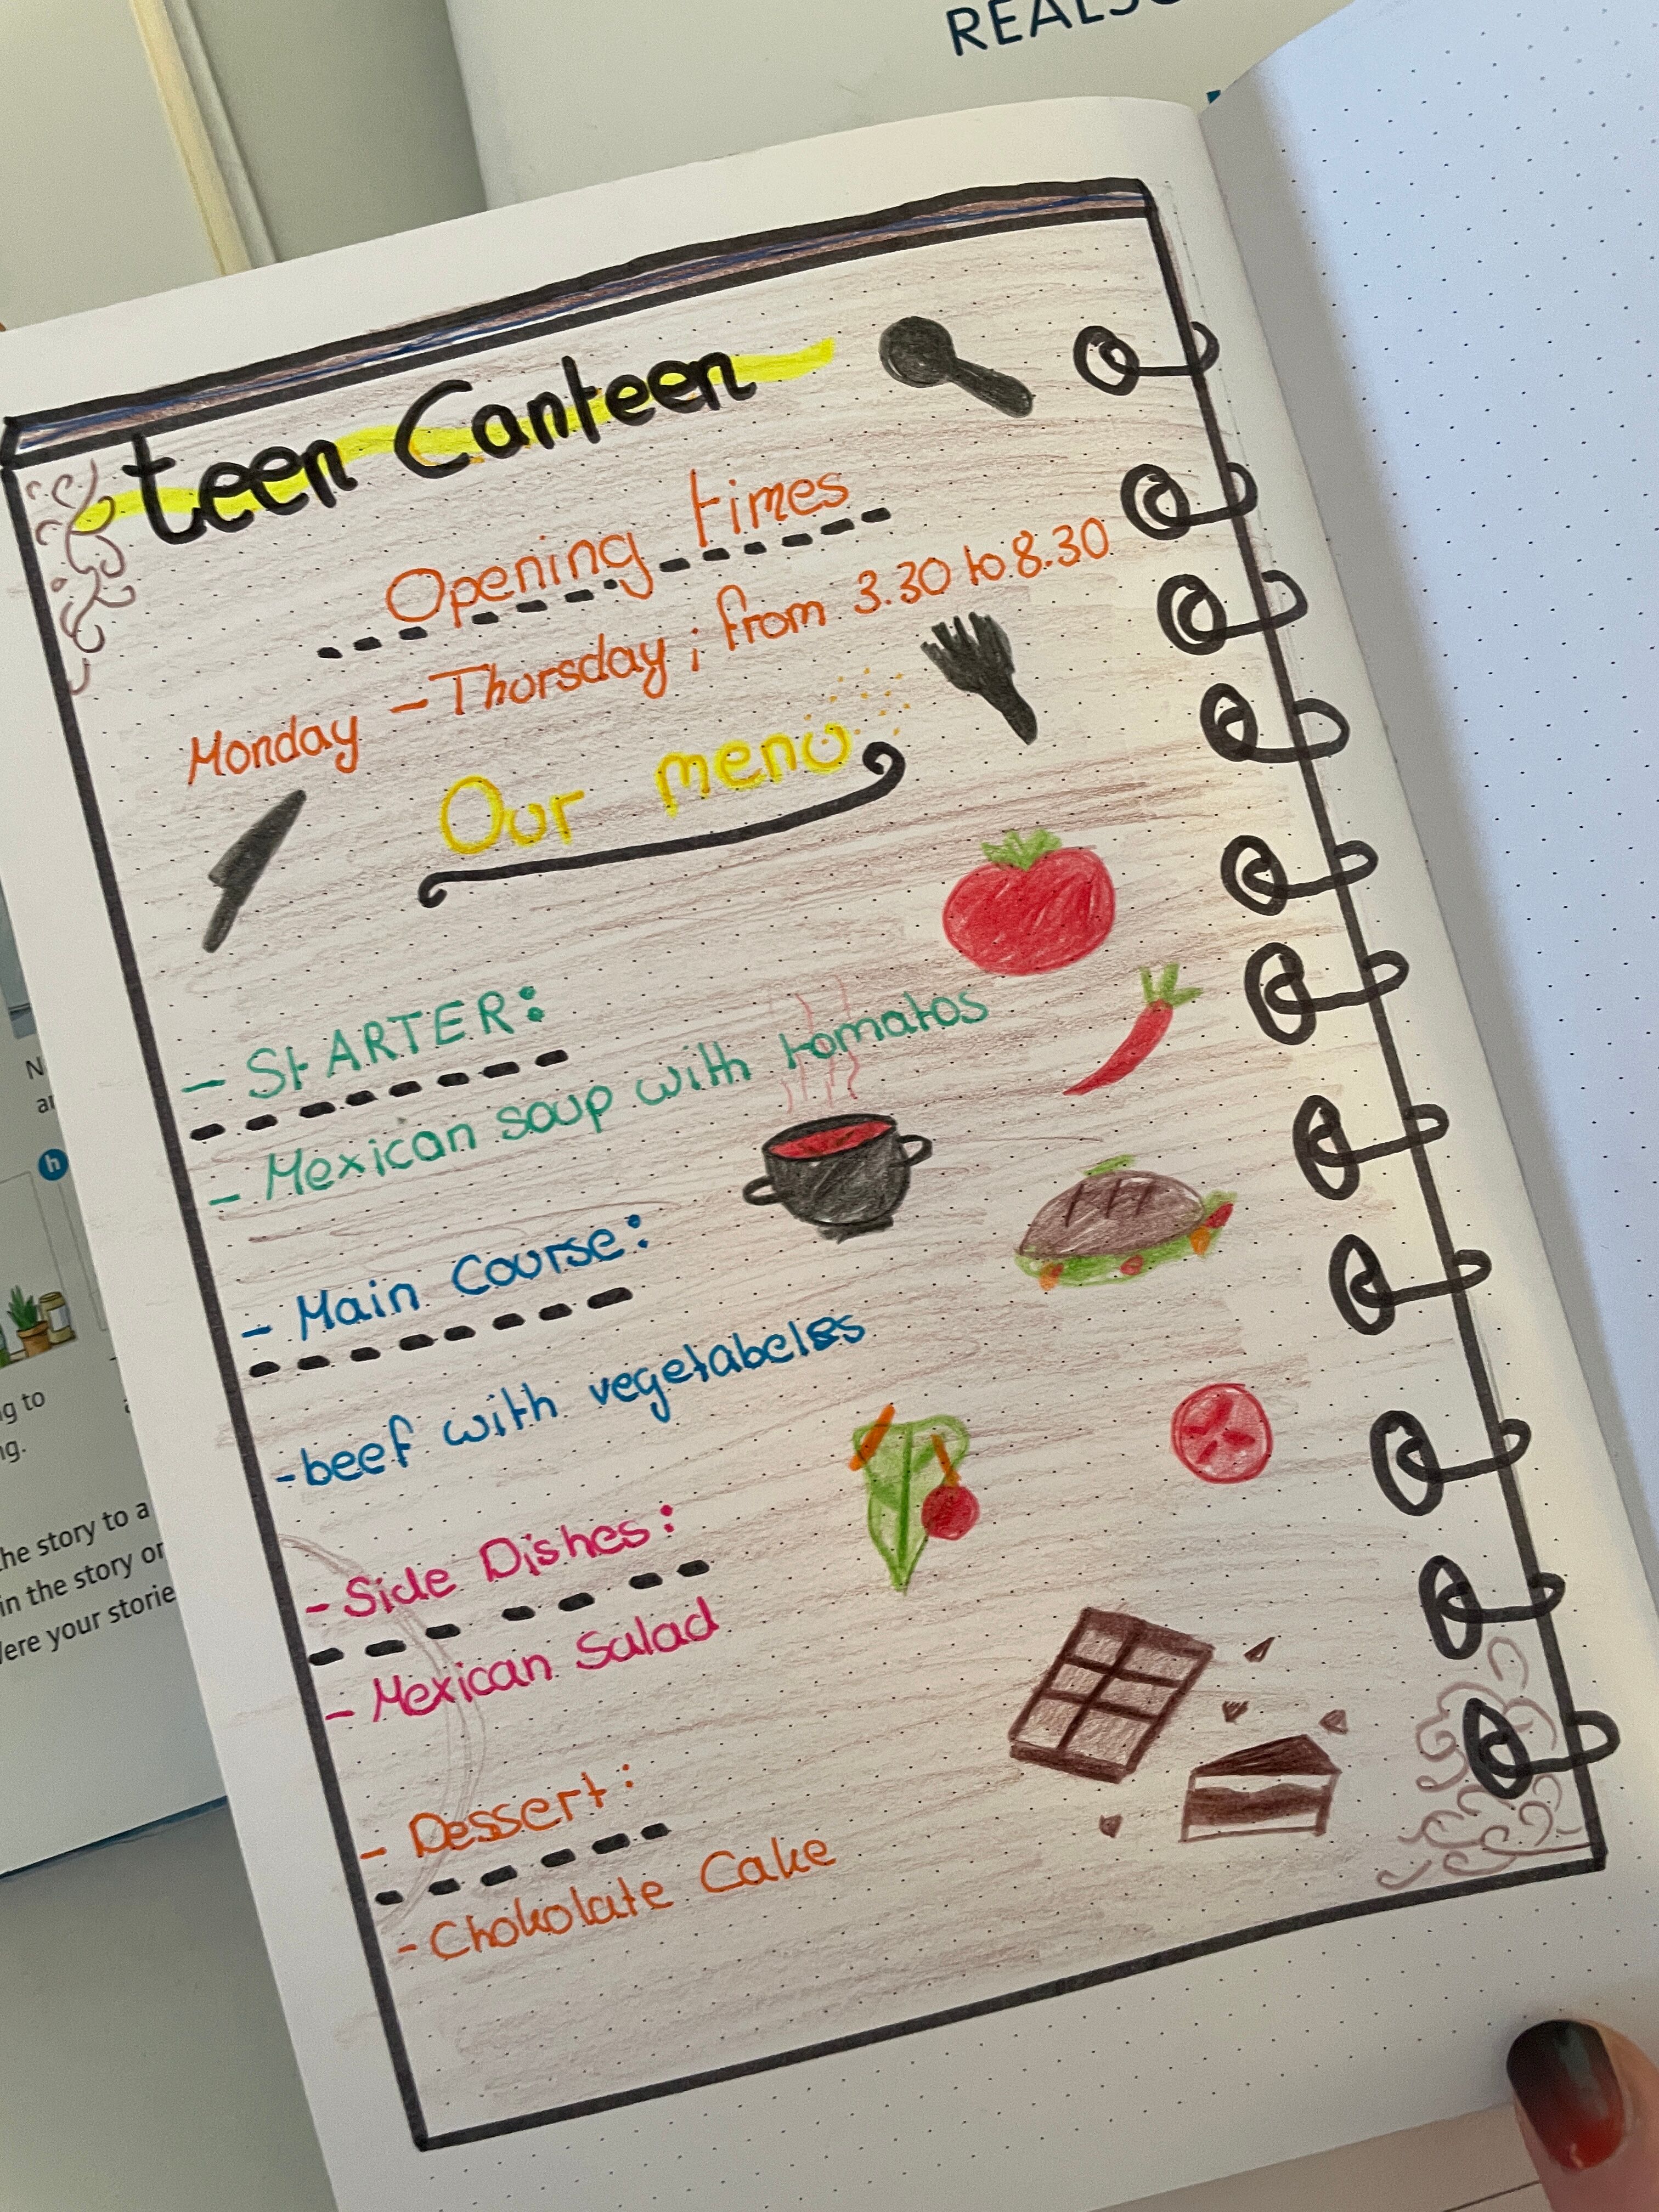 REALS
teen Canteen
Opening times
Monday – Thursday ; from 3.30 to 8.30
Our menu
- StARTER:
- Mexican soup with tomatos
- Main Course:
- beef with vegetabeles
- Side Dishes:
- Mexican Salad
- Dessert:
- Chokolate Cake
h
g to
ng.
he story to a
in the story or
ere your storie